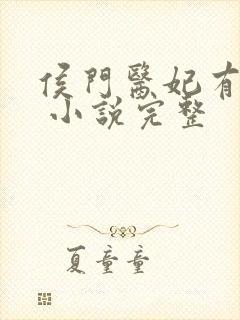 侯門醫妃有
小說完整
夏童童